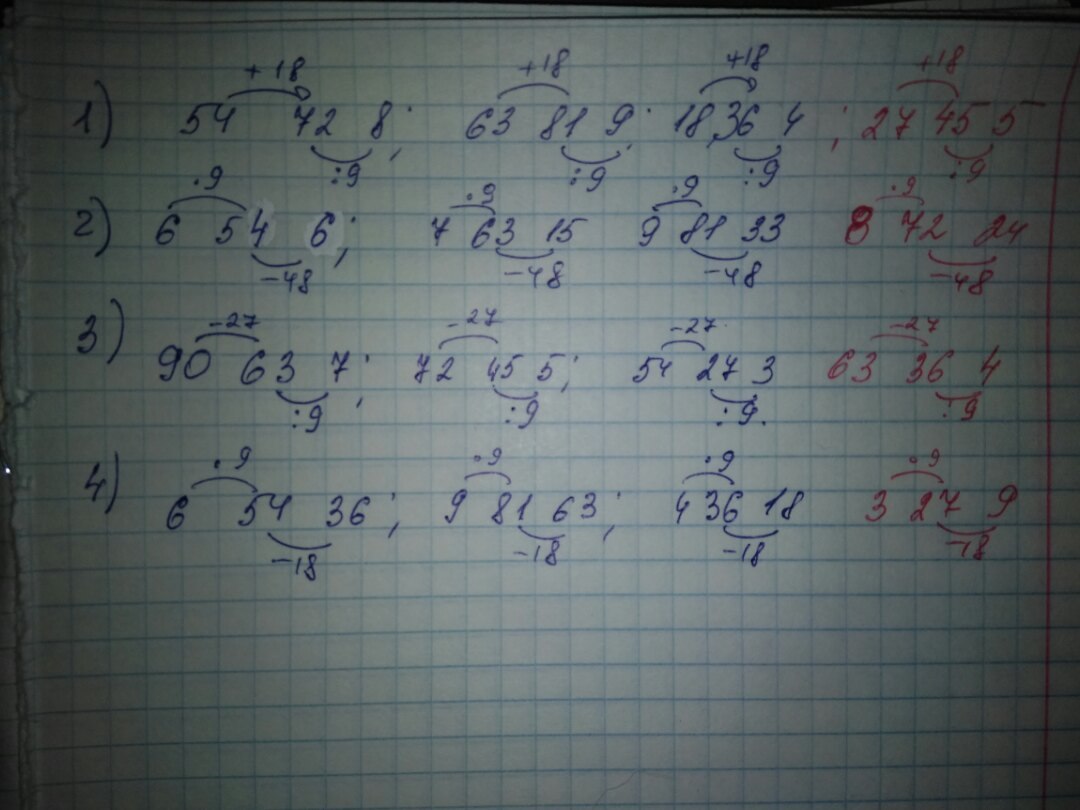 +18 +18 +18 +18
1) 54 72 8; 63 81 9; 18,36 4 ; 27 45 5
:9 :9 :9 :9
·9 ·9 ·9 ·9
2) 6 54 6; 7 63 15 9 81 33 8 72 24
-48 -48 -48 -48
-27 -27 -27 -27
3) 90 63 7; 72 45 5; 54 27 3 63 36 4
:9 :9 :9. :9
·9 ·9 ·9 ·9
4) 6 54 36; 9 81 63; 4 36 18 3 27 9
-18 -18 -18 -18